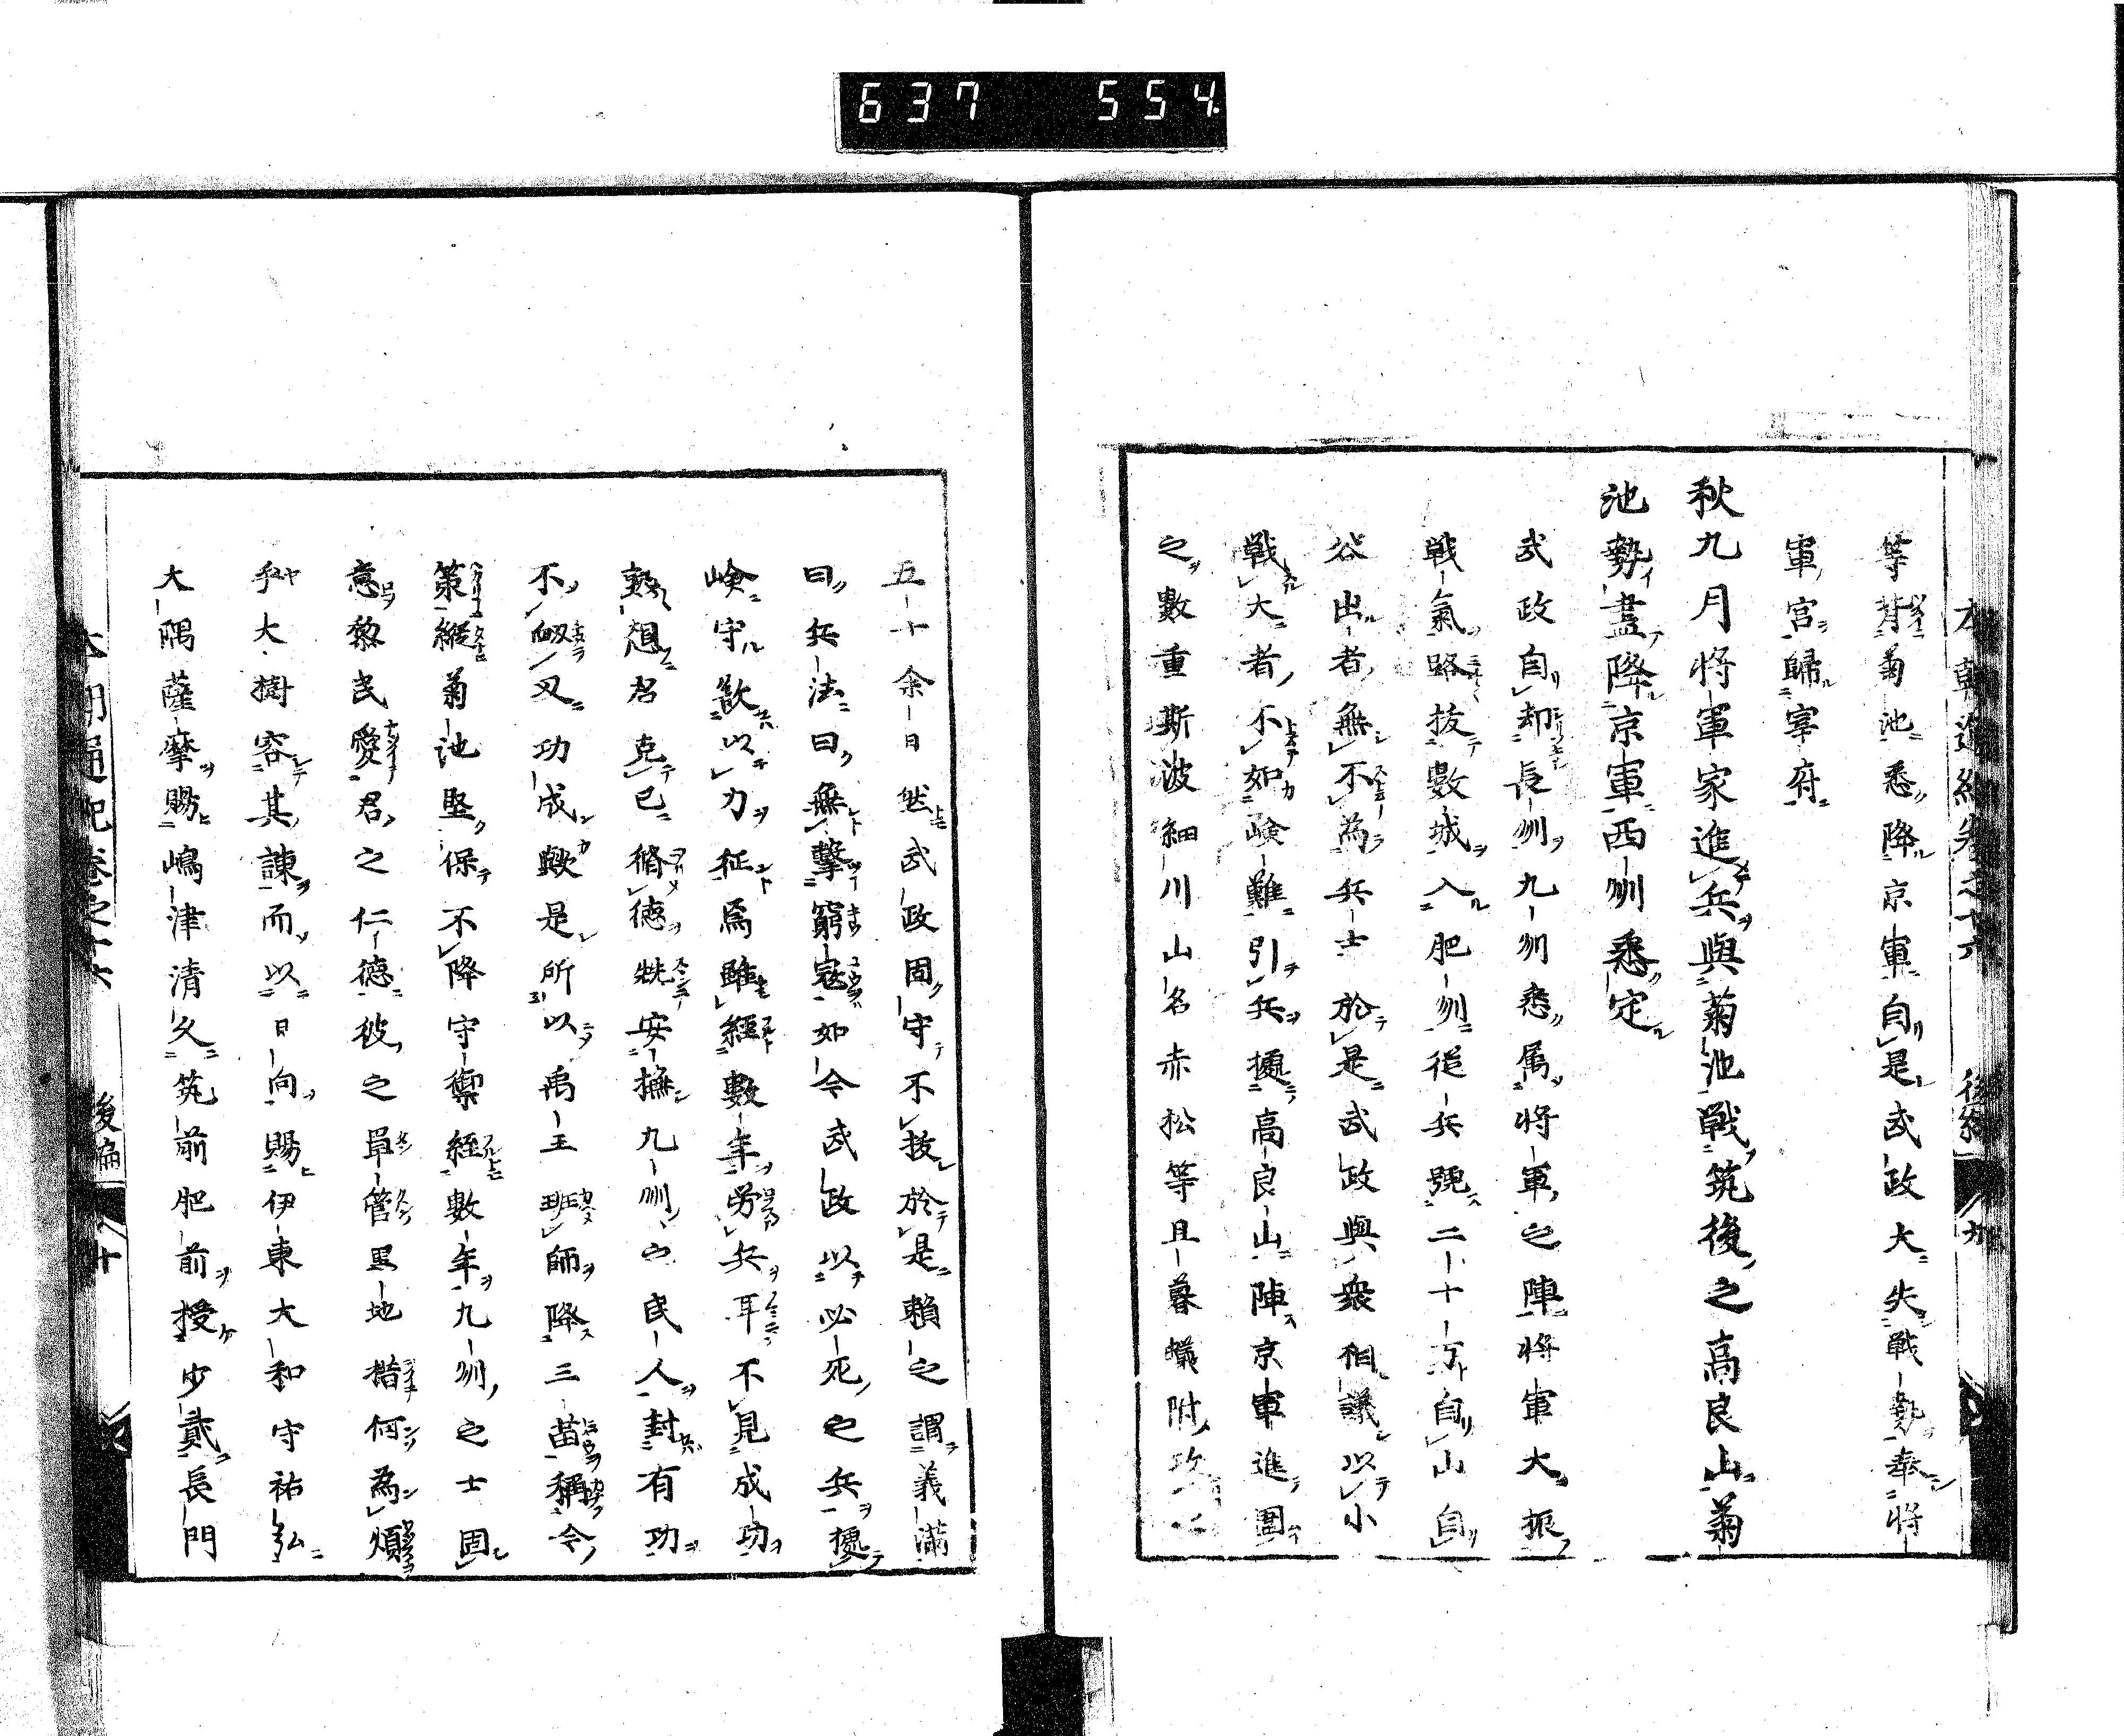 637 554
等背菊池悉降京軍自是武政大失戦勢奉将
軍宮歸宰府
秋九月将軍家進兵與菊池戦筑後之高良山菊
池勢盡降京軍西刕悉定
武政自却長刕九刕悉属将軍之陣将軍大振
戦氣略抜數城入肥刕従兵號二十万自山自
谷出者無不為兵士於是武政與衆相議以小
戦大者不如嶮難引兵據高良山陣京軍進圍
之數重斯波細川山名赤松等且暮蟻附攻
五十余日然武政固守不抜於是頼之謂義満
曰兵法曰無撃窮寇如今武政以必死之兵據
嶮守歒以力征焉雖經數年労兵耳不見成功
熟想君克己脩徳安撫九刕之民人封有功
不血刃功成歟是所以禹王班師降三苗稱令
策縦菊池堅保不降守禦經數年九刕之士固
意黎民愛君之仁徳彼之單管里地措何為煩
乎大樹容其諫而以日向賜伊東大和守祐弘
大隅薩摩賜嶋津清久筑前肥前授少貳長門
本朝通紀巻之十六 後編 九
本朝通紀巻之十六 後編 十